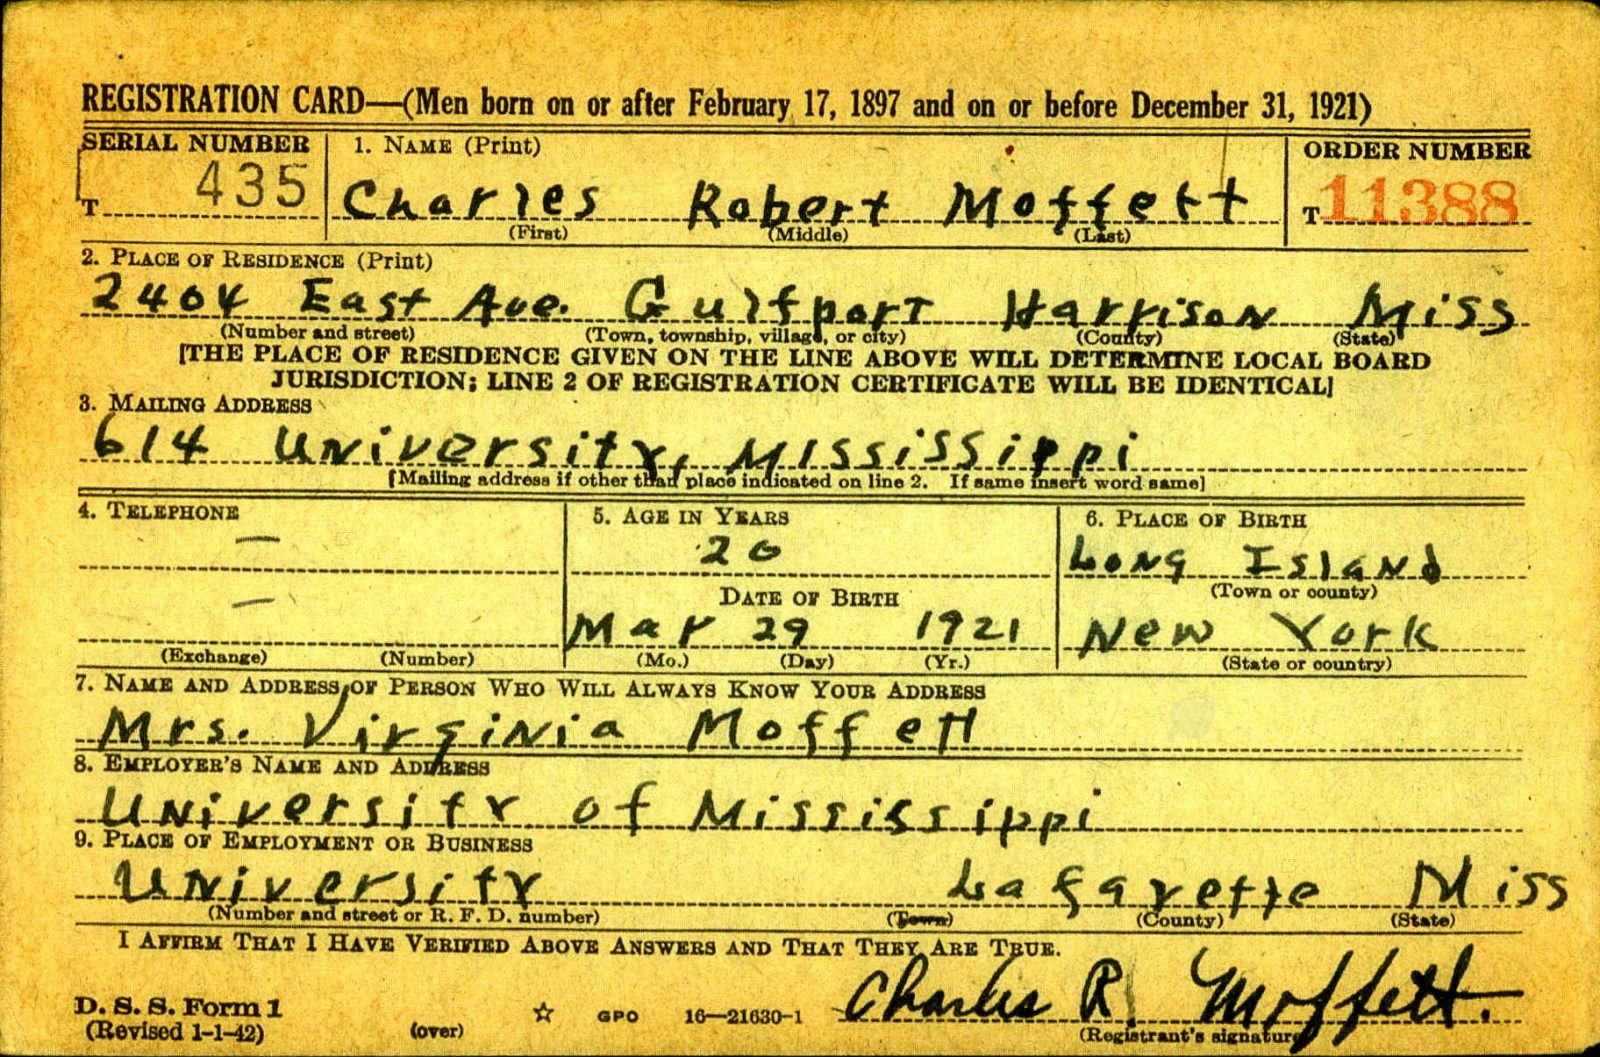 REGISTRATION CARD—(Men born on or after February 17, 1897 and on or before December 31, 1921)
SERIAL NUMBER 1. NAME (Print) ORDER NUMBER
T 435 Charles Robert Moffett T 11388
(First) (Middle) (Last)
2. PLACE OF RESIDENCE (Print)
2404 East Ave. Gulfport Harrison Miss
(Number and street) (Town, township, village, or city) (County) (State)
[THE PLACE OF RESIDENCE GIVEN ON THE LINE ABOVE WILL DETERMINE LOCAL BOARD
JURISDICTION; LINE 2 OF REGISTRATION CERTIFICATE WILL BE IDENTICAL]
3. MAILING ADDRESS
614 University, Mississippi
[Mailing address if other than place indicated on line 2. If same insert word same]
4. TELEPHONE 5. AGE IN YEARS 6. PLACE OF BIRTH
— 20 Long Island
(Town or county)
DATE OF BIRTH
— Mar 29 1921 New York
(Exchange) (Number) (Mo.) (Day) (Yr.) (State or country)
7. NAME AND ADDRESS OF PERSON WHO WILL ALWAYS KNOW YOUR ADDRESS
Mrs. Virginia Moffett
8. EMPLOYER'S NAME AND ADDRESS
University of Mississippi
9. PLACE OF EMPLOYMENT OR BUSINESS
University Lafayette Miss
(Number and street or R. F. D. number) (Town) (County) (State)
I AFFIRM THAT I HAVE VERIFIED ABOVE ANSWERS AND THAT THEY ARE TRUE.
Charles R. Moffett.
D. S. S. Form 1
(Revised 1-1-42) (over) ☆ GPO 16—21630-1 (Registrant's signature)